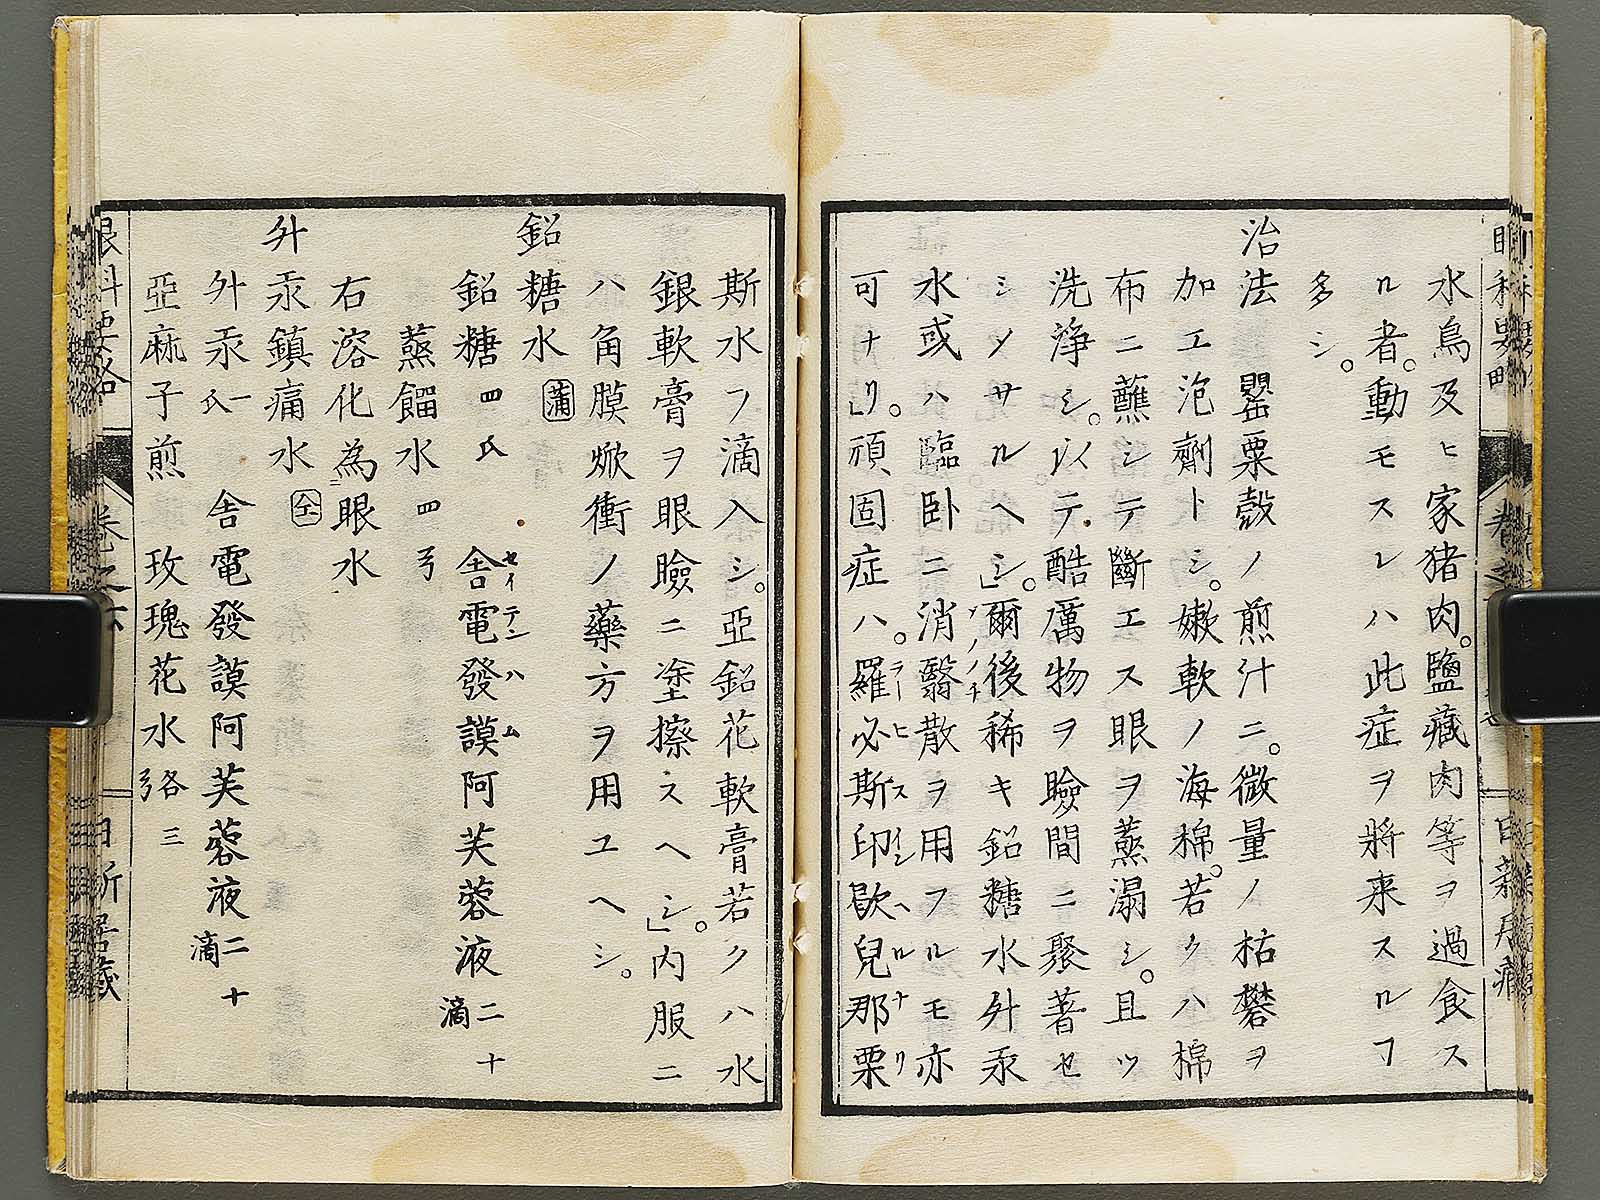 水鳥及ヒ家猪肉。鹽藏肉等ヲ過食ス
ル者。動モスレハ此症ヲ將来スルヿ
多シ。
治法　罌粟殻ノ煎汁ニ。微量ノ枯礬ヲ
加エ泡劑トシ。嫩軟ノ海棉。若クハ棉
布ニ蘸シテ斷エス眼ヲ蒸溻シ。且ツ
洗浄シ。以テ酷厲物ヲ瞼間ニ聚著セ
シメサルヘシ。」爾後稀キ鉛糖水舛汞
水或ハ臨卧ニ消翳散ヲ用フルモ亦
可ナリ。」頑固症ハ。羅必斯印歇兒那栗
斯水ヲ滴入シ。亞鉛花軟膏若クハ水
銀軟膏ヲ眼瞼ニ塗擦スヘシ。」内服ニ
ハ角膜焮衝ノ藥方ヲ用ユヘシ。
鉛糖水 蒲
鉛糖 四氏　舎電發謨阿芙蓉液 二十滴
セイデンハム
蒸餾水 四弓
右溶化為眼水
舛汞鎮痛水 仝
舛汞 一氏　舎電發謨阿芙蓉液 二十滴
亞麻子煎　玫瑰花水 各三弓
眼科要略　卷之六　日新居藏